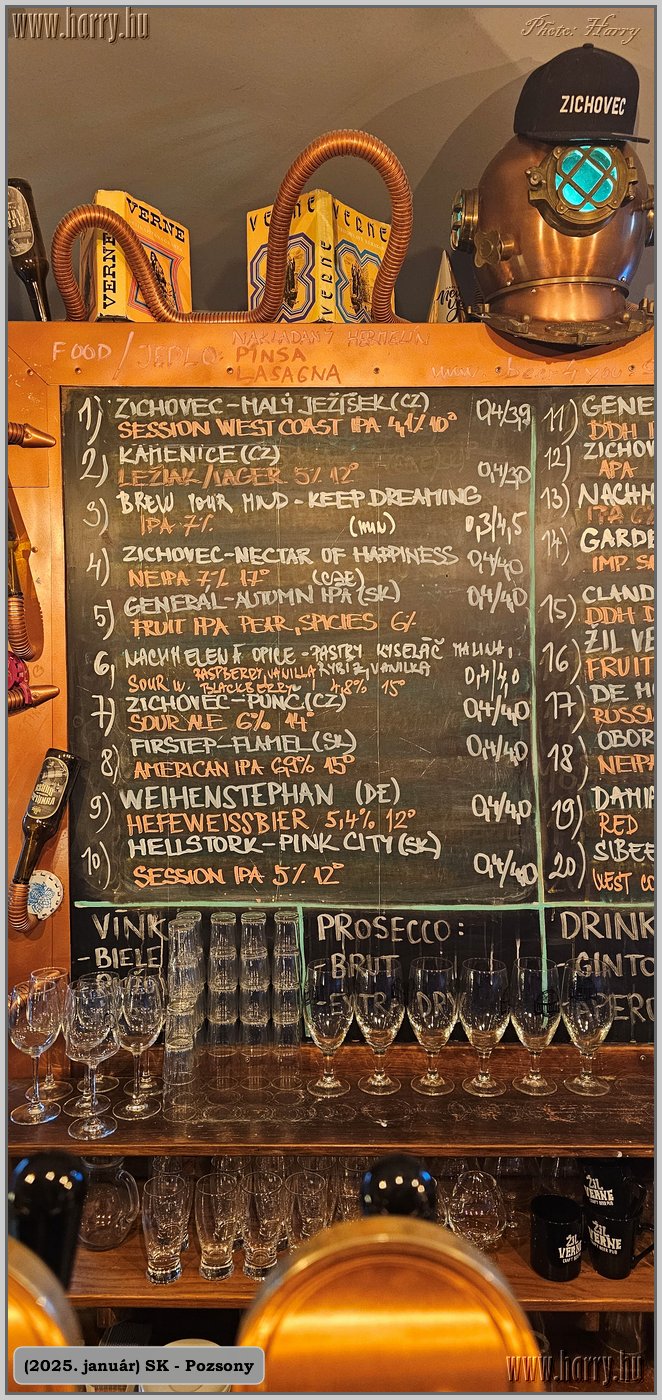 www.harry.hu
Photo: Harry
ZICHOVEC
VERNE
VERNE
VERNE
VERNE
VERNE
VERNE
FOOD / JEDLO:
NAKLADANÝ HERMELÍN
PINSA
LASAGNA
1) ZICHOVEC-MALÝ JEŽÍŠEK (CZ) 0,4/3,9
SESSION WEST COAST IPA 4,1% 10°
2) KAMENICE (CZ)
LEŽIAK/LAGER 5% 12° 0,4/3,0
3) BREW YOUR MIND - KEEP DREAMING
IPA 7% (HUN) 0,3/4,5
4) ZICHOVEC-NECTAR OF HAPPINESS 0,4/4,0
NEIPA 7% 17° (CZE)
5) GENERAL-AUTUMN IPA (SK) 0,4/4,0
FRUIT IPA PEAR, SPICIES 6%
6) NACHMELENÁ OPICE - PASTRY KYSELÁČ MALINA,
RYBÍZ, VANILKA
RASPBERRY, VANILLA
SOUR W. BLACKBERRY 4,8% 15° 0,4/4,0
7) ZICHOVEC-PUNČ (CZ) 0,4/4,0
SOUR ALE 6% 14°
8) FIRSTEP-FLAMEL (SK) 0,4/4,0
AMERICAN IPA 6,9% 15°
9) WEIHENSTEPHAN (DE) 0,4/4,0
HEFEWEISSBIER 5,4% 12°
10) HELLSTORK-PINK CITY (SK)
SESSION IPA 5% 12° 0,4/4,0
11) GENE
DDH I
12) ZICHOV
APA
13) NACHM
14) GARDE
IMP. S
15) CLAND
DDH D
16) ŽIL VE
FRUIT
17) DE M
RUSS
18) OBOR
NEIP
19) DAMIA
RED
20) SIBEE
WEST CO
VÍNK
- BIELE
PROSECCO:
- BRUT
- EXTRA DRY
DRINK
GINTO
- APERO
ŽIL VERNE
CRAFT BEER PUB
ŽIL VERNE
CRAFT BEER PUB
ŽIL VERNE
CRAFT BEER PUB
(2025. január) SK - Pozsony
www.harry.hu